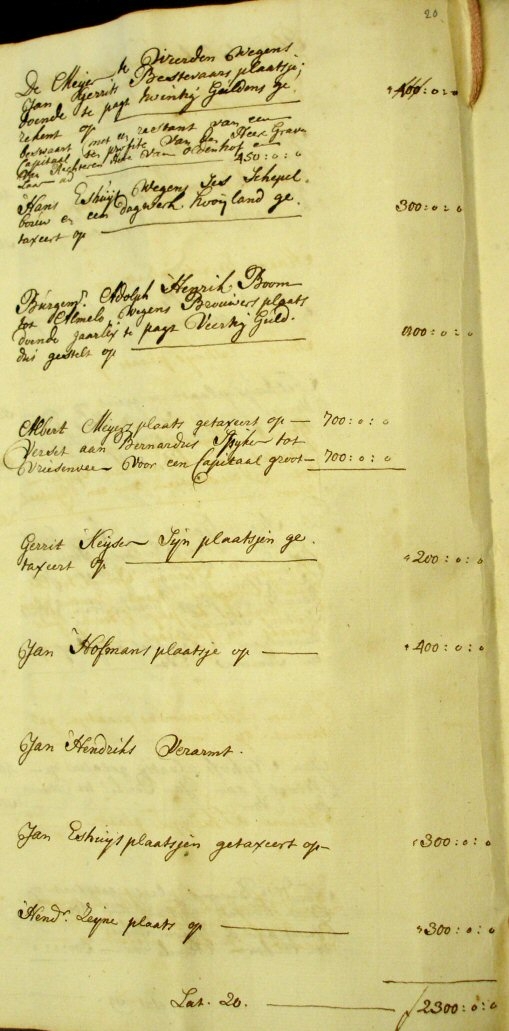 20
De Meijer te Wierden wegens
Jan Gerrits Bestevaars plaatsje,
doende te pagt twintig Guldens ge
rekent op 400:0:0
beswaart met en restant van een
Capitaal ten profite van den Heer Graav
van Rechteren Heer van
450:0:0
Hans Eshuijs wegens Ses Schepel
bouw en een dagwerk hooijland ge.
taxeert op 300:0:0
Burgemr. Adolph Henrik Boom
tot Almelo, wegens Brouwers plaats
doende jaarlix te pagt Veertig Guld.
dus gestelt op 800:0:0
Albert Meijers plaats getaxeert op 700:0:0
Verset aan Bernardus Spijker tot
Vriesenveen voor een Capitaal groot 700:0:0
Gerrit Keijser Sijn plaatsjen ge.
taxeert op 200:0:0
Jan Hofmans plaatsje op 400:0:0
Jan Hendriks Verarmt.
Jan Eshuijs plaatsjen getaxeert op 300:0:0
Hendr. Zeijne plaats op 300:0:0
Lat. 20. ƒ 2300:0:0